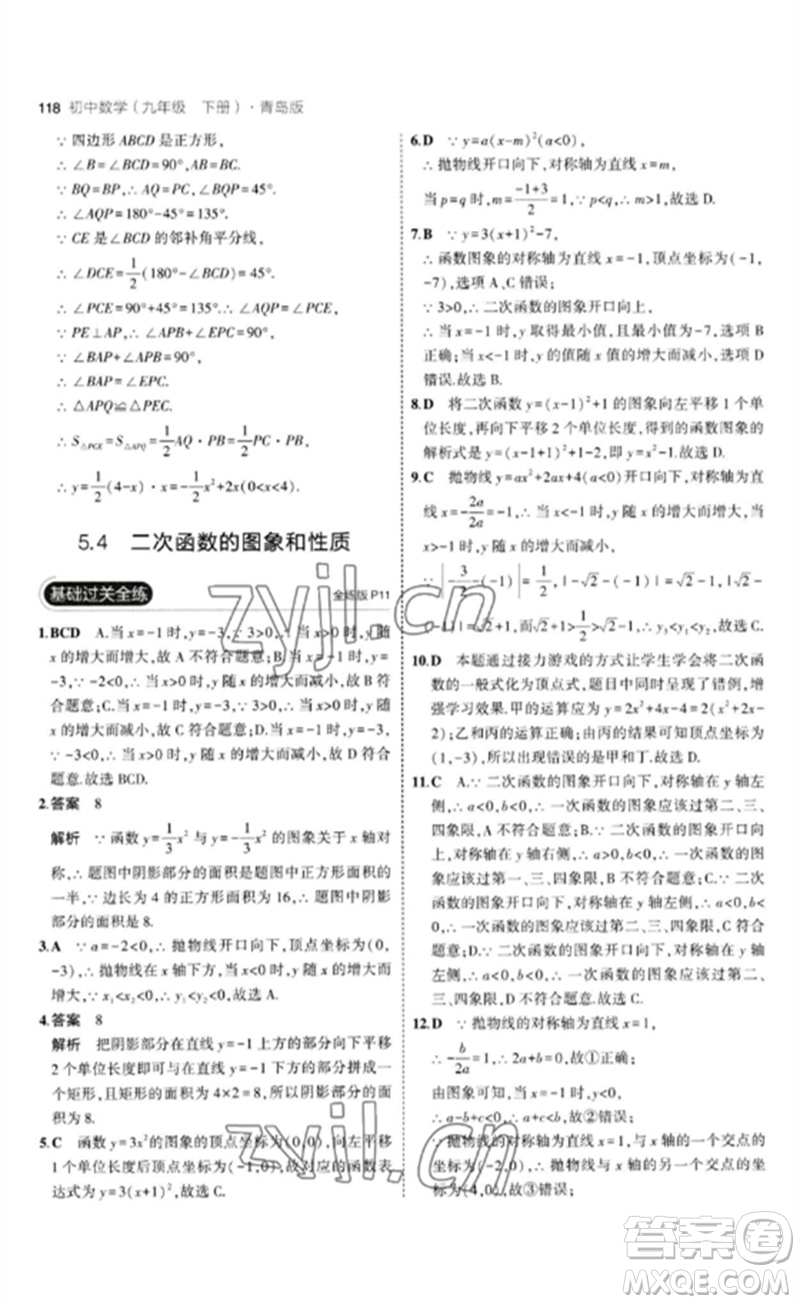 118 初中数学(九年级 下册)·青岛版
∵ 四边形 ABCD 是正方形,
∴ ∠B=∠BCD=90°,AB=BC.
∵ BQ=BP,∴ ∠AQP=45°.
∴ ∠AQP=180°-45°=135°.
∵ CE 是∠BCD 的邻补角平分线,
∴ ∠DCE=1/2(180°-∠BCD)=45°.
∴ ∠PCE=90°+45°=135°=∠AQP.
∵ PE⊥AP,∴ ∠APB+∠EPC=90°.
∵ ∠BAP+∠APB=90°,
∴ ∠BAP=∠EPC.
∴ △APQ≌△PEC.
∴ S△PCE=S△APQ=1/2AQ·PB=1/2PC·PB,
∴ y=1/2(4-x)·x=-1/2x²+2x(0<x<4).
5.4 二次函数的图象和性质
基础过关全练
全练版 P11
1.BCD A.当 x=-1 时,y=-3,∵ 3>0,∴ 当
的增大而增大,故 A 不符合题意;B.当 x=-1 时,
∵ -2<0,∴ 当 x<0 时,y 随 x 的增大而增大,故 B 符合
题意;C.当 x=-1 时,y=-3,∵ 3>0,∴ 当 x<0 时,y 随
x 的增大而增大,故 C 符合题意;D.当 x=-1 时,y=-3,
∵ -3<0,∴ 当 x<0 时,y 随 x 的增大而增大,故 D 符合
题意.故选 BCD.
2.答案 8
解析 ∵ 函数 y=1/3x² 与 y=-1/3x² 的图象关于 x 轴对
称,∴ 题图中阴影部分的面积是题图中正方形面积的
一半,∵ 边长为 4 的正方形面积为 16,∴ 题图中阴影
部分的面积是 8.
3.A ∵ a=-2<0,∴ 抛物线开口向下,顶点坐标为(0,
-3),抛物线在 x 轴下方,当 x<0 时,y 随 x 的增大而
增大,∵ x₁<x₂<0,∴ y₁<y₂<0,故选 A.
4.答案 8
解析 把阴影部分在直线 y=-1 上方的部分向下平移
2 个单位长度,阴影部分即可转化为一
个矩形,且矩形的面积为 4×2=8,∴ 阴影部分的面
积为 8.
5.C 函数 y=3x² 的图象的顶点坐标为(0,0),向左平移
1 个单位长度后顶点坐标为(-1,0),故对应的函数表
达式为 y=3(x+1)²,故选 C.
6.D ∵ y=a(x-m)²(a<0),
∴ 抛物线开口向下,对称轴为直线 x=m,
当 p=q 时,m=(-1+3)/2=1,∵ p<q,∴ m>1,故选 D.
7.B ∵ y=3(x+1)²-7,
∴ 函数图象的对称轴为直线 x=-1,顶点坐标为(-1,
-7),选项 A、C 错误;
∵ 3>0,∴ 二次函数的图象开口向上,
∴ 当 x=-1 时,y 取得最小值,且最小值为-7,选项 B
正确;当 x<-1 时,y 的值随 x 的增大而减小,选项 D
错误.故选 B.
8.D 将二次函数 y=(x-1)²+1 的图象向左平移 1 个单
位长度,再向下平移 2 个单位长度,得到的函数图象的
解析式是 y=(x-1+1)²+1-2,即 y=x²-1.故选 D.
9.C 抛物线 y=ax²+2ax+4(a<0)开口向下,对称轴为直
线 x=-2a/2a=-1,当 x<-1 时,y 随 x 的增大而增大,当
x>-1 时,y 随 x 的增大而减小,
∵ |-3/2-(-1)|=1/2,|-√2-(-1)|=|√2-1|=√2-1,
|√2-(-1)|=√2+1,√2-1<1/2<√2+1,∴ y₃<y₁<y₂,故选 C.
10.D 本题通过接力游戏的方式让学生学会将二次函
数的一般式化为顶点式,题目中同时呈现了错例,增
强学习效果.甲的运算应为 y=2x²+4x-4=2(x²+2x-
2);乙和丙的运算正确;由丙的结果可知顶点坐标为
(1,-3),所以出现错误的是甲和丁.故选 D.
11.C A.∵ 二次函数的图象开口向下,对称轴在 y 轴左
侧,∴ a<0,b<0,∴ 一次函数的图象应该过第二、三、
四象限,A 不符合题意;B.∵ 二次函数的图象开口向
y 轴
象应该过第一、三、四象限,B 不符合题意;C.∵ 二次
函数的图象开口向下,对称轴在 y 轴左侧,∴ a<0,b<
0,∴ 一次函数的图象应该过第二、三、四象限,C 符合
题意;D.∵ 二次函数的图象开口向下,对称轴在 y 轴
左侧,∴ a<0,b<0,∴ 一次函数的图象应该过第二、
三、四象限,D 不符合题意.故选 C.
12.D ∵ 抛物线的对称轴为直线 x=1,
∴ -b/2a=1,故①正确;
由图象可知,当 x=-1 时,y<0,
∴ a-b+c<0,故②错误;
∵ 抛物线的对称轴为直线 x=1,与 x 轴的一个交点的
坐标为(-2,0),∴ 抛物线与 x 轴的另一个交点的坐
标为(4,0),故③错误;
zyjl.cn
zyjl.cn
答案圈
MXQE.COM